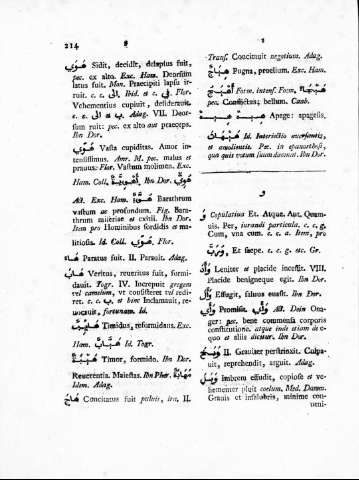 214
هَوَى Sidit, decidit, delapsus fuit,
pec. ex alto. Exc. Ham. Deorsim
latus fuit. Mon. Praecipiti lapsu ir-
ruit. c. c. الى. Ibid. et c. فى. Flor.
Vehementius cupiuit, desiderauit.
c. c. الى et ب. Adag. VII. Deor-
sum ruit: pec. ex alto aut praeceps.
Ibn Dor.
هَوًى Vasta cupiditas. Amor in-
tensissimus. Amr. M. pec. malus et
prauus: Flor. Vastum molimen. Exc.
Ham. Coll. Ibn Dor.
Act. Exc. Ham. Barathrum
vastum ac profundum. Fig. Bara-
thrum miseriae et exitii. Ibn Dor.
Item pro Hominibus sordidis et ma-
litiosis. Id. Coll. Flor.
Paratus fuit. II. Parauit. Adag.
هَابَ Veritus, reueritus fuit, formi-
dauit. Togr. IV. Increpuit gregem
vel camelum, vt consisteret vel redi-
ret. c. c. ب. et hinc Inclamauit, re-
uocauit, fortunam. Id.
Timidus, reformidans. Exc.
Ham. Id. Togr.
هَيْبَةٌ Timor, formido. Ibn Dor.
Reuerentia. Maiestas. Ibn Pher.
Idem. Adag.
هَاجَ Concitatus fuit puluis, ira. II.
Transf. Concinuit negotium. Adag.
هِيَاجٌ Pugna, proelium. Exc. Ham.
Form. intens. Form.
pec. Conflictus; bellum. Caab.
Apege: apagesis,
Id. Interiectio auersantis,
et amolientis. Pec. in aparnethosi,
qua quis votum suum damnat. Ibn Dor.
و
وَ Copulatiua Et. Atque. Aut. Quam-
uis. Per, iurandi particula, c. c. g.
Cum, vna cum. c. c. a. Item, pro
وَرُبَّ, Et saepe. c. c. g. etc. Gr.
Leniter et placide incessit. VIII.
Placide benigneque egit. Ibn Dor.
Effugit, saluus euasit. Ibn Dor.
Promisit. Act. Dein Ona-
ger: pec. bene commensa corporis
constitutione. atque inde etiam de e-
quo et aliis dicitur. Ibn Dor.
وَبَّخَ II. Grauiter perstrinxit. Culpa-
uit, reprehendit, arguit. Adag.
وَبَلَ Imbrem effudit, copiose et ve-
hementer pluit coelum, Med. Damm.
Grauis et insalubris, minime con-
veni-